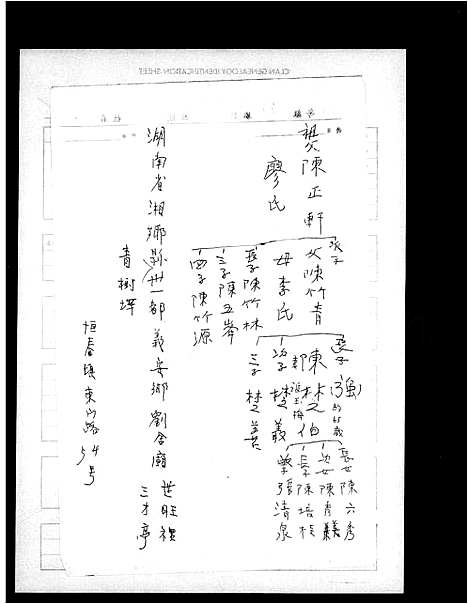 CLAN GENEALOGY IDENTIFICATION SHEET
陳正軒
廖氏
長子
父陳竹青
母李氏
長子陳竹林
三子陳玉峯
四子陳竹源
長子
陳楚伯
張玉梅
次子楚義
三子楚善
長女陳六秀
次女陳秀義
長子陳培松
張清泉
湖南省湘鄉縣卅一都義安鄉劉含廟
青樹坪
世旺禄
三才亭
恒春鎮東門路54号